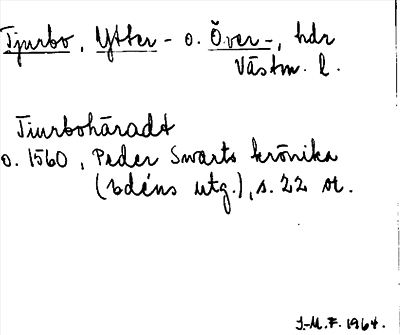 Tjurbo, Ytter- o. Över-, hdr
Västm. l.
Tiurbohäradt
o. 1560, Peder Swarts krönika
(Edéns utg.), s. 22 ot.
J.-M. F. 1964.